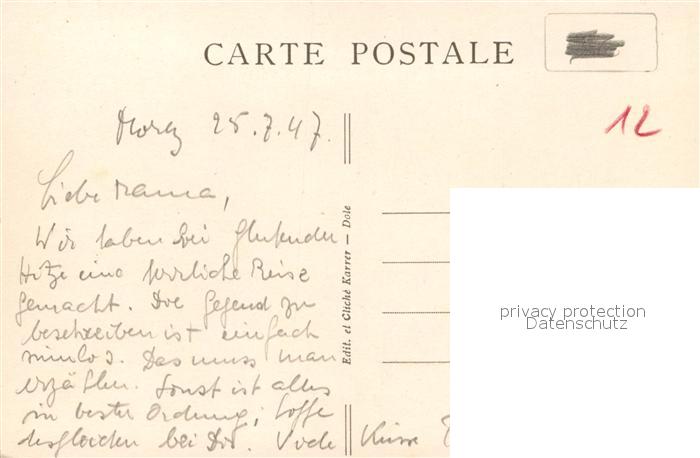 CARTE POSTALE
12
Morez 25.7.47.
Liebe Mama,
Wir haben bei glühender
Hitze eine herrliche Reise
gemacht. Die Gegend zu
beschreiben ist einfach
sinnlos. Das muss man
erzählen. Sonst ist alles
in bester Ordnung; hoffe
desgleichen bei Dir. Viele Küsse
Edit. et Cliché Karrer — Dole
privacy protection
Datenschutz